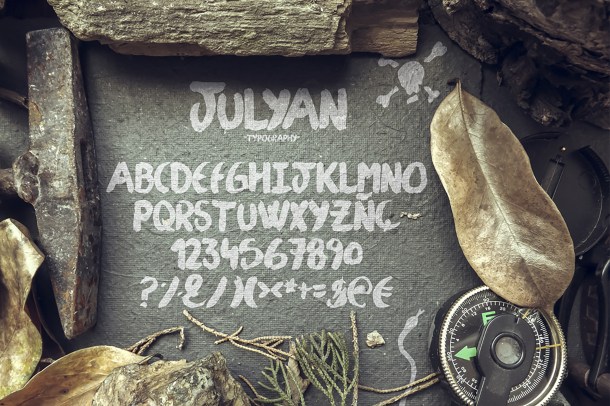 JULYAN
-TYPOGRAPHY-
ABCDEFGHIJKLMNO
PQRSTUWXYZÑÇ
1234567890